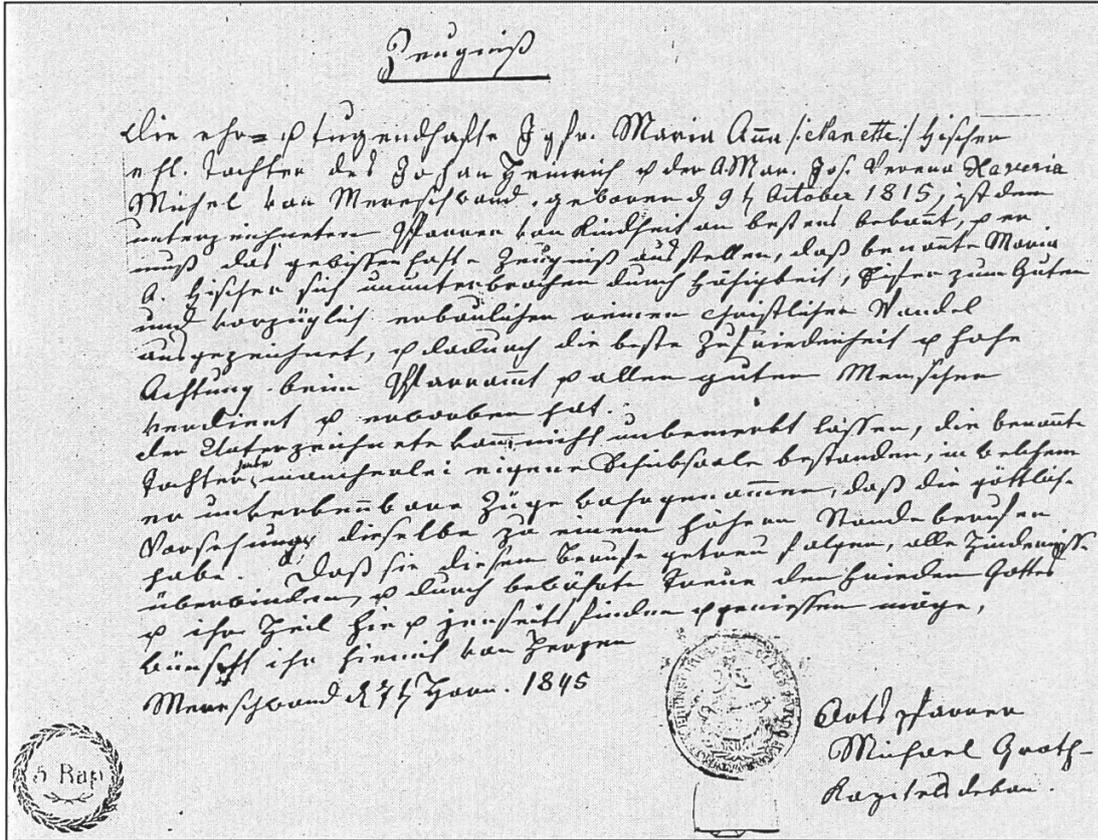 Zeugniß
Die ehr= & tugendhafte Jgfr. Maria Aña /:Nanette:/ Fischer
ehl. Tochter des Johan Heinrich & der A. Mar. Jos. Verena Xaveria
Michel von Merenschwand, geboren d 9t October 1815, ist dem
unterzeichneten Pfarrer von Kindheit an bestens bekañt, & er
muß das gewissenhafte Zeugniß ausstellen, daß benañte Maria
A. Fischer sich ununterbrochen durch Eifer zum Guten
und vorzüglich erbaulichen reinen christlichen Wandel
ausgezeichnet, & dadurch die beste Zufriedenheit & hohe
Achtung beim Pfarramt & allen guten Menschen
verdient & erworben hat.
Der Unterzeichnete kañ nicht unbemerkt lassen, die benañte
Tochter habe mancherlei eigene Schiksaale bestanden, in welchem
er unverkeñbare Züge wahrgenomen, daß die göttlich-
Vorsehung dieselbe zu einem höhern Stande berufen
habe. Daß sie diesem Berufe getreu folgen, alle Hindernisse
überwinden, & durch bewährte Treue den Frieden Gottes
& ihr Heil hie & jenseits finden & geniessen möge,
wünscht ihr hiemit von Herzen
Merenschwand d 7t Horn. 1845
Orts Pfarrer
Michael Groth-
Kapitelsdekan.
5 Rap